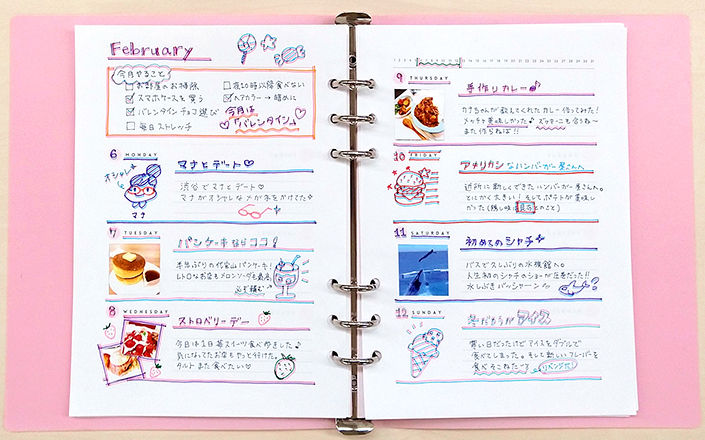 February
今月やること
お部屋のお掃除
夜10時以降食べない
スマホケースを買う
ヘアカラー→暗めに
バレンタインチョコ選び
今月は
毎日ストレッチ
「バレンタイン」
6 MONDAY
マナとデート♡
オシャレ
渋谷でマナとデート♡
マナがオシャレなメガネをかけてた
マナ
7 TUESDAY
パンケーキならココ!
半年ぶりの代官山パンケーキ!
レトロなお店とメロンソーダも最高
必ず頼む
8 WEDNESDAY
ストロベリーデー
今日は1日苺スイーツ食べ歩きした♪
気になってたお店もやっと行けた。
タルトまた食べたい♡
9 THURSDAY
手作りカレー♪
カナちゃんが教えてくれたカレー作ってみた!
メッチャ美味しかった♪ ズッキーニも合うね〜
また作らねば!!
10 FRIDAY
アメリカンなハンバーガー屋さんへ
近所に新しくできたハンバーガー屋さんへ。
とにかく大きい!そしてポテトが美味し
かった
11 SATURDAY
初めてのシャチ
バスで久しぶりの水族館へ。
人生初のシャチのショーが圧巻だった!!
水しぶきバッシャーン
12 SUNDAY
冬だろうがアイス
寒い日だったけどアイスをダブルで
食べてしまった。そして新しいフレーバーを
食べそこねた
リベンジだ!